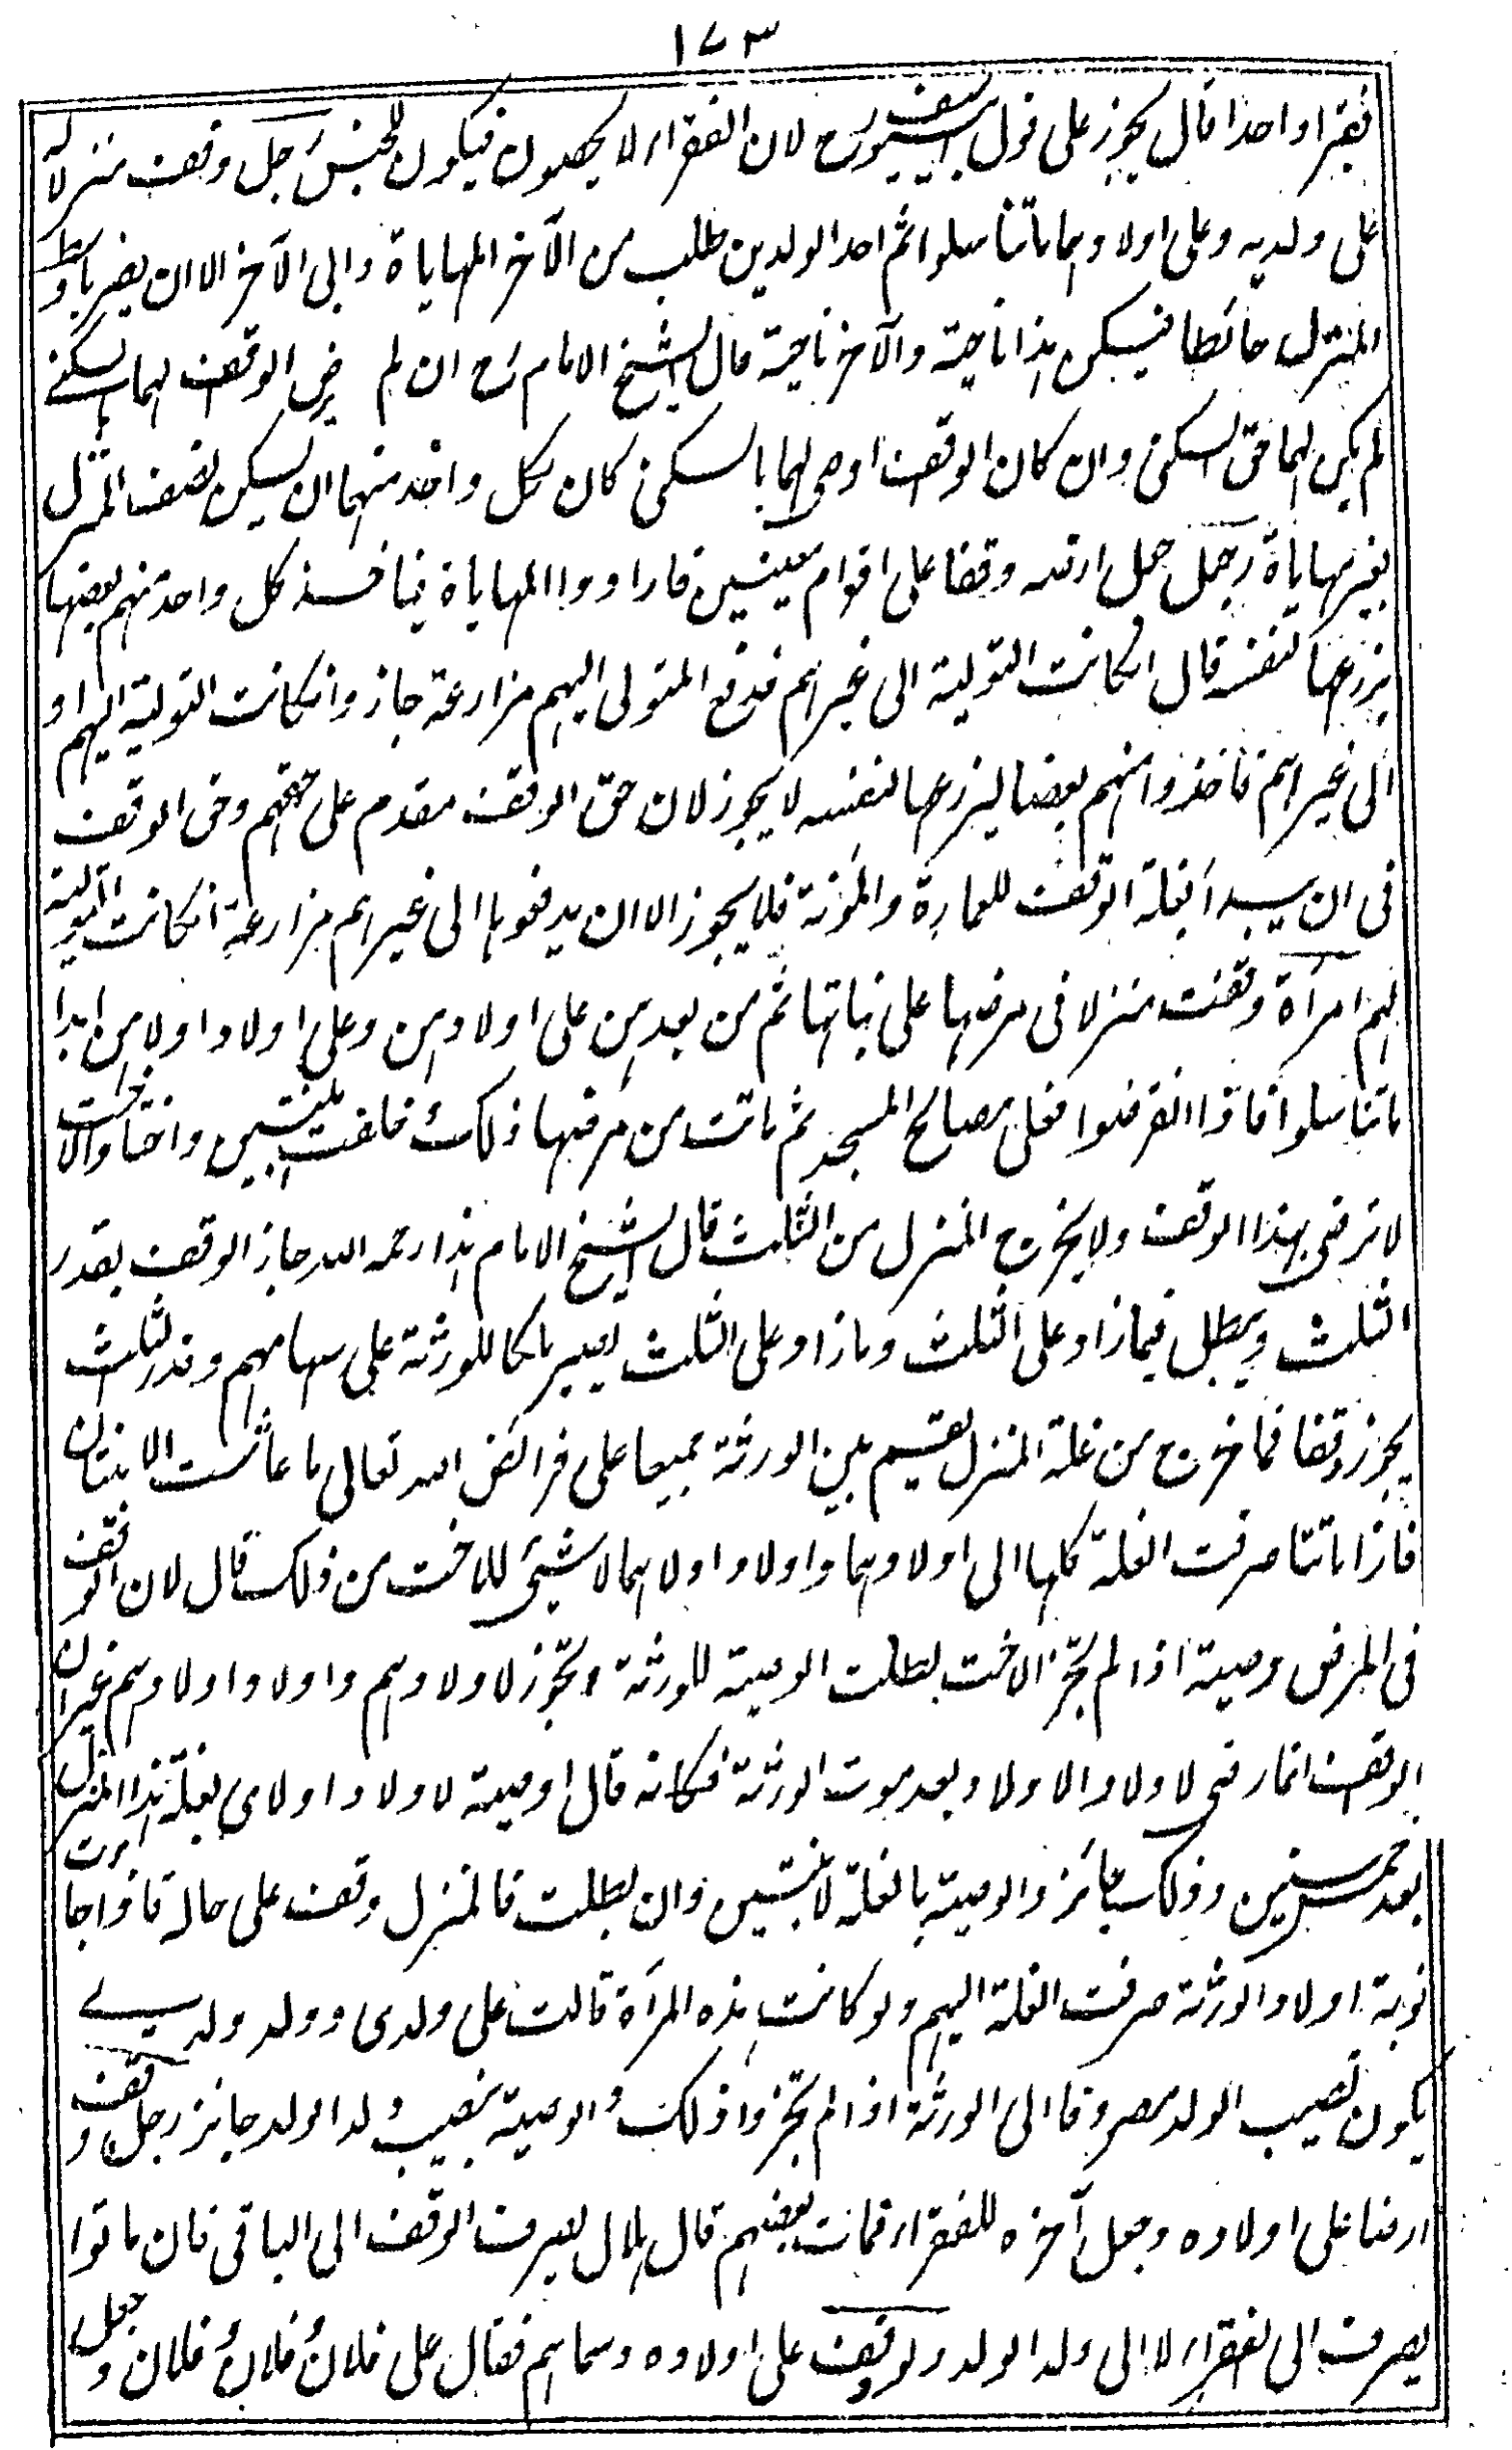 ١٧٣
فقيرا واحدا قال يجوز على قول ابى يوسف رح لان الفقراء لا يحصون فيكون للجنس رجل وقف منزلا له
على ولديه وعلى اولادهما ما تناسلوا ثم احد الولدين طلب من الآخر المهاياة وابى الآخر الا ان يضربا وسط
المنزل حائطا فيسكن هذا ناحية والآخر ناحية قال الشيخ الامام رح ان لم يرض الوقف لهما بالسكنى
لم يكن لهما حق السكنى وان كان الوقف اوصى لهما بالسكنى كان لكل واحد منهما ان يسكن نصف المنزل
بغير مهاياة رجل جعل ارضه وقفا على اقوام معينين فارادوا المهاياة فياخذ كل واحد منهم بعضها
يزرعها لنفسه قال ان كانت التولية الى غيرهم فدفع المتولى اليهم مزارعة جاز وان كانت التولية اليهم او
الى غيرهم فاخذوا منهم بعضا ليزرعها لنفسه لا يجوز لان حق الوقف مقدم على حقهم وحق الوقف
فى ان يبدأ بغلة الوقف للعمارة والمؤنة فلا يجوز الا ان يدفعوها الى غيرهم مزارعة ان كانت التولية
لهم امرأة وقفت منزلا فى مرضها على بناتها ثم من بعدهن على اولادهن وعلى اولاد اولادهن ابدا
ما تناسلوا فاذا انقرضوا فعلى مصالح المسجد ثم ماتت من مرضها ذلك فخلفت بنتين واختا والاخت
لا ترضى بهذا الوقف ولا يخرج المنزل من الثلث قال الشيخ الامام هذا رحمه الله جاز الوقف بقدر
الثلث ويبطل فيما زاد على الثلث وما زاد على الثلث يصير ملكا للورثة على سهامهم وقدر الثلث
يجوز وقفا فما خرج من غلة المنزل يقسم بين الورثة جميعا على فرائض الله تعالى ما عاشت الابنتان
فاذا ماتتا صرفت الغلة كلها الى اولادهما واولاد اولادهما لا شئ للاخت من ذلك قال لان الوقف
فى المرض وصية اذا لم تجز الاخت بطلت الوصية للورثة وتجوز لاولادهم واولاد اولادهم غير ان
الوقف انما رضى لاولاد الاولاد بعد موت الورثة فكانه قال اوصيت لاولاد اولادى بغلة هذا المنزل
بعد خمس سنين وذلك جائز والوصية بالغلة لابنتين وان بطلت فالمنزل وقف على حاله فاذا جاءت
نوبة اولاد الورثة صرفت الغلة اليهم ولو كانت هذه المرأة قالت على ولدى وولد ولدى
يكون نصيب الولد مصروفا الى الورثة اذا لم تجز وا ذلك والوصية بنصيب ولد الولد جائز رجل وقف
ارضا على اولاده وجعل آخره للفقراء فمات بعضهم قال هلال يصرف الوقف الى الباقى فان ماتوا
يصرف الى الفقراء لا الى ولد الولد ولو وقف على اولاده وسماهم فقال على فلان وفلان وفلان وجعل